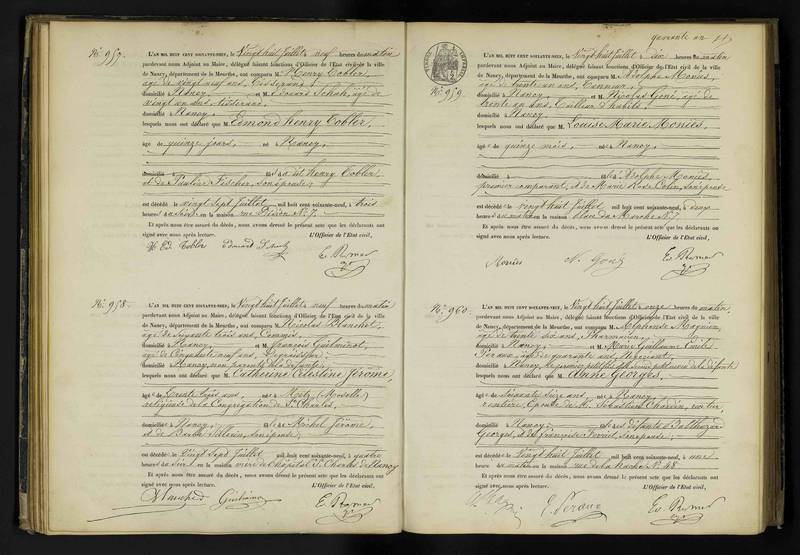 N° 957.
L'AN MIL HUIT CENT SOIXANTE-NEUF, le Vingt huit Juillet, neuf heures du matin
pardevant nous Adjoint au Maire, délégué faisant fonctions d'Officier de l'Etat civil de la ville
de Nancy, département de la Meurthe, ont comparu M. Henry Tobler,
âgé de vingt neuf ans, Tisserand,
domicilié à Nancy, et M. Edouard Schak, âgé de
vingt un ans, Tisserand,
domicilié à Nancy,
lesquels nous ont déclaré que M. Edmond Henry Tobler,
âgé de quinze jours, né à Nancy,
domicilié fils du dit Henry Tobler,
et de Pauline Fischer, son épouse,
est décédé le vingt Sept Juillet mil huit cent soixante-neuf, à trois
heures du soir en la maison rue N° 7.
Et après nous être assuré du décès, nous avons dressé le présent acte que les déclarants ont
signé avec nous après lecture. L'Officier de l'Etat civil,
Tobler Edouard
N° 958.
L'AN MIL HUIT CENT SOIXANTE-NEUF, le Vingt huit Juillet, neuf heures du matin
pardevant nous Adjoint au Maire, délégué faisant fonctions d'Officier de l'Etat civil de la ville
de Nancy, département de la Meurthe, ont comparu M. Nicolas Blanchet,
âgé de Soixante trois ans, Commis,
domicilié à Nancy, et M. François
âgé de Cinquante neuf ans,
domicilié à Nancy, non parents de la défunte,
lesquels nous ont déclaré que M. Catherine Célestine Jérome,
âgée de trente trois ans, née à Metz (Moselle)
religieuse de la Congrégation de St Charles,
domiciliée à Nancy, fille de Michel Jérome,
et de Barbe son épouse,
est décédée le Vingt Sept Juillet mil huit cent soixante-neuf, à quatre
heures du soir en la maison mère de l'hôpital St Charles de Nancy
Et après nous être assuré du décès, nous avons dressé le présent acte que les déclarants ont
signé avec nous après lecture. L'Officier de l'Etat civil,
N° 959.
L'AN MIL HUIT CENT SOIXANTE-NEUF, le Vingt huit Juillet, dix heures du matin
pardevant nous Adjoint au Maire, délégué faisant fonctions d'Officier de l'Etat civil de la ville
de Nancy, département de la Meurthe, ont comparu M. Adolphe Moniès,
âgé de trente un ans, Tanneur,
domicilié à Nancy, et M. Nicolas âgé de
trente un ans, Tailleur d'habits,
domicilié à Nancy,
lesquels nous ont déclaré que M. Louise Marie Moniès,
âgée de quinze mois, née à Nancy,
domicilié à fille d'Adolphe Moniès,
premier comparant, et de Marie Rose Colin, son épouse
est décédée le vingt huit Juillet mil huit cent soixante-neuf, à deux
heures du matin en la maison place du Marché N° 7.
Et après nous être assuré du décès, nous avons dressé le présent acte que les déclarants ont
signé avec nous après lecture. L'Officier de l'Etat civil,
Moniès
N° 960.
L'AN MIL HUIT CENT SOIXANTE-NEUF, le Vingt huit Juillet, onze heures du matin,
pardevant nous Adjoint au Maire, délégué faisant fonctions d'Officier de l'Etat civil de la ville
de Nancy, département de la Meurthe, ont comparu M. Alphonse
âgé de trente six ans, Pharmacien,
domicilié à Nancy, et M. Marie Guillaume Emile
âgé de quarante ans, Négociant,
domicilié à Nancy, le premier petit fils de la défunte
lesquels nous ont déclaré que M. Anne Georges,
âgée de Soixante Seize ans, née à Nancy,
rentière, Epouse de M. Sébastien Chardin, rentier,
domiciliée à Nancy, fille des défunts Balthazar
Georges, et de Françoise son épouse,
est décédée le Vingt huit Juillet mil huit cent soixante-neuf, à une
heure du matin en la maison rue N° 48.
Et après nous être assuré du décès, nous avons dressé le présent acte que les déclarants ont
signé avec nous après lecture. L'Officier de l'Etat civil,